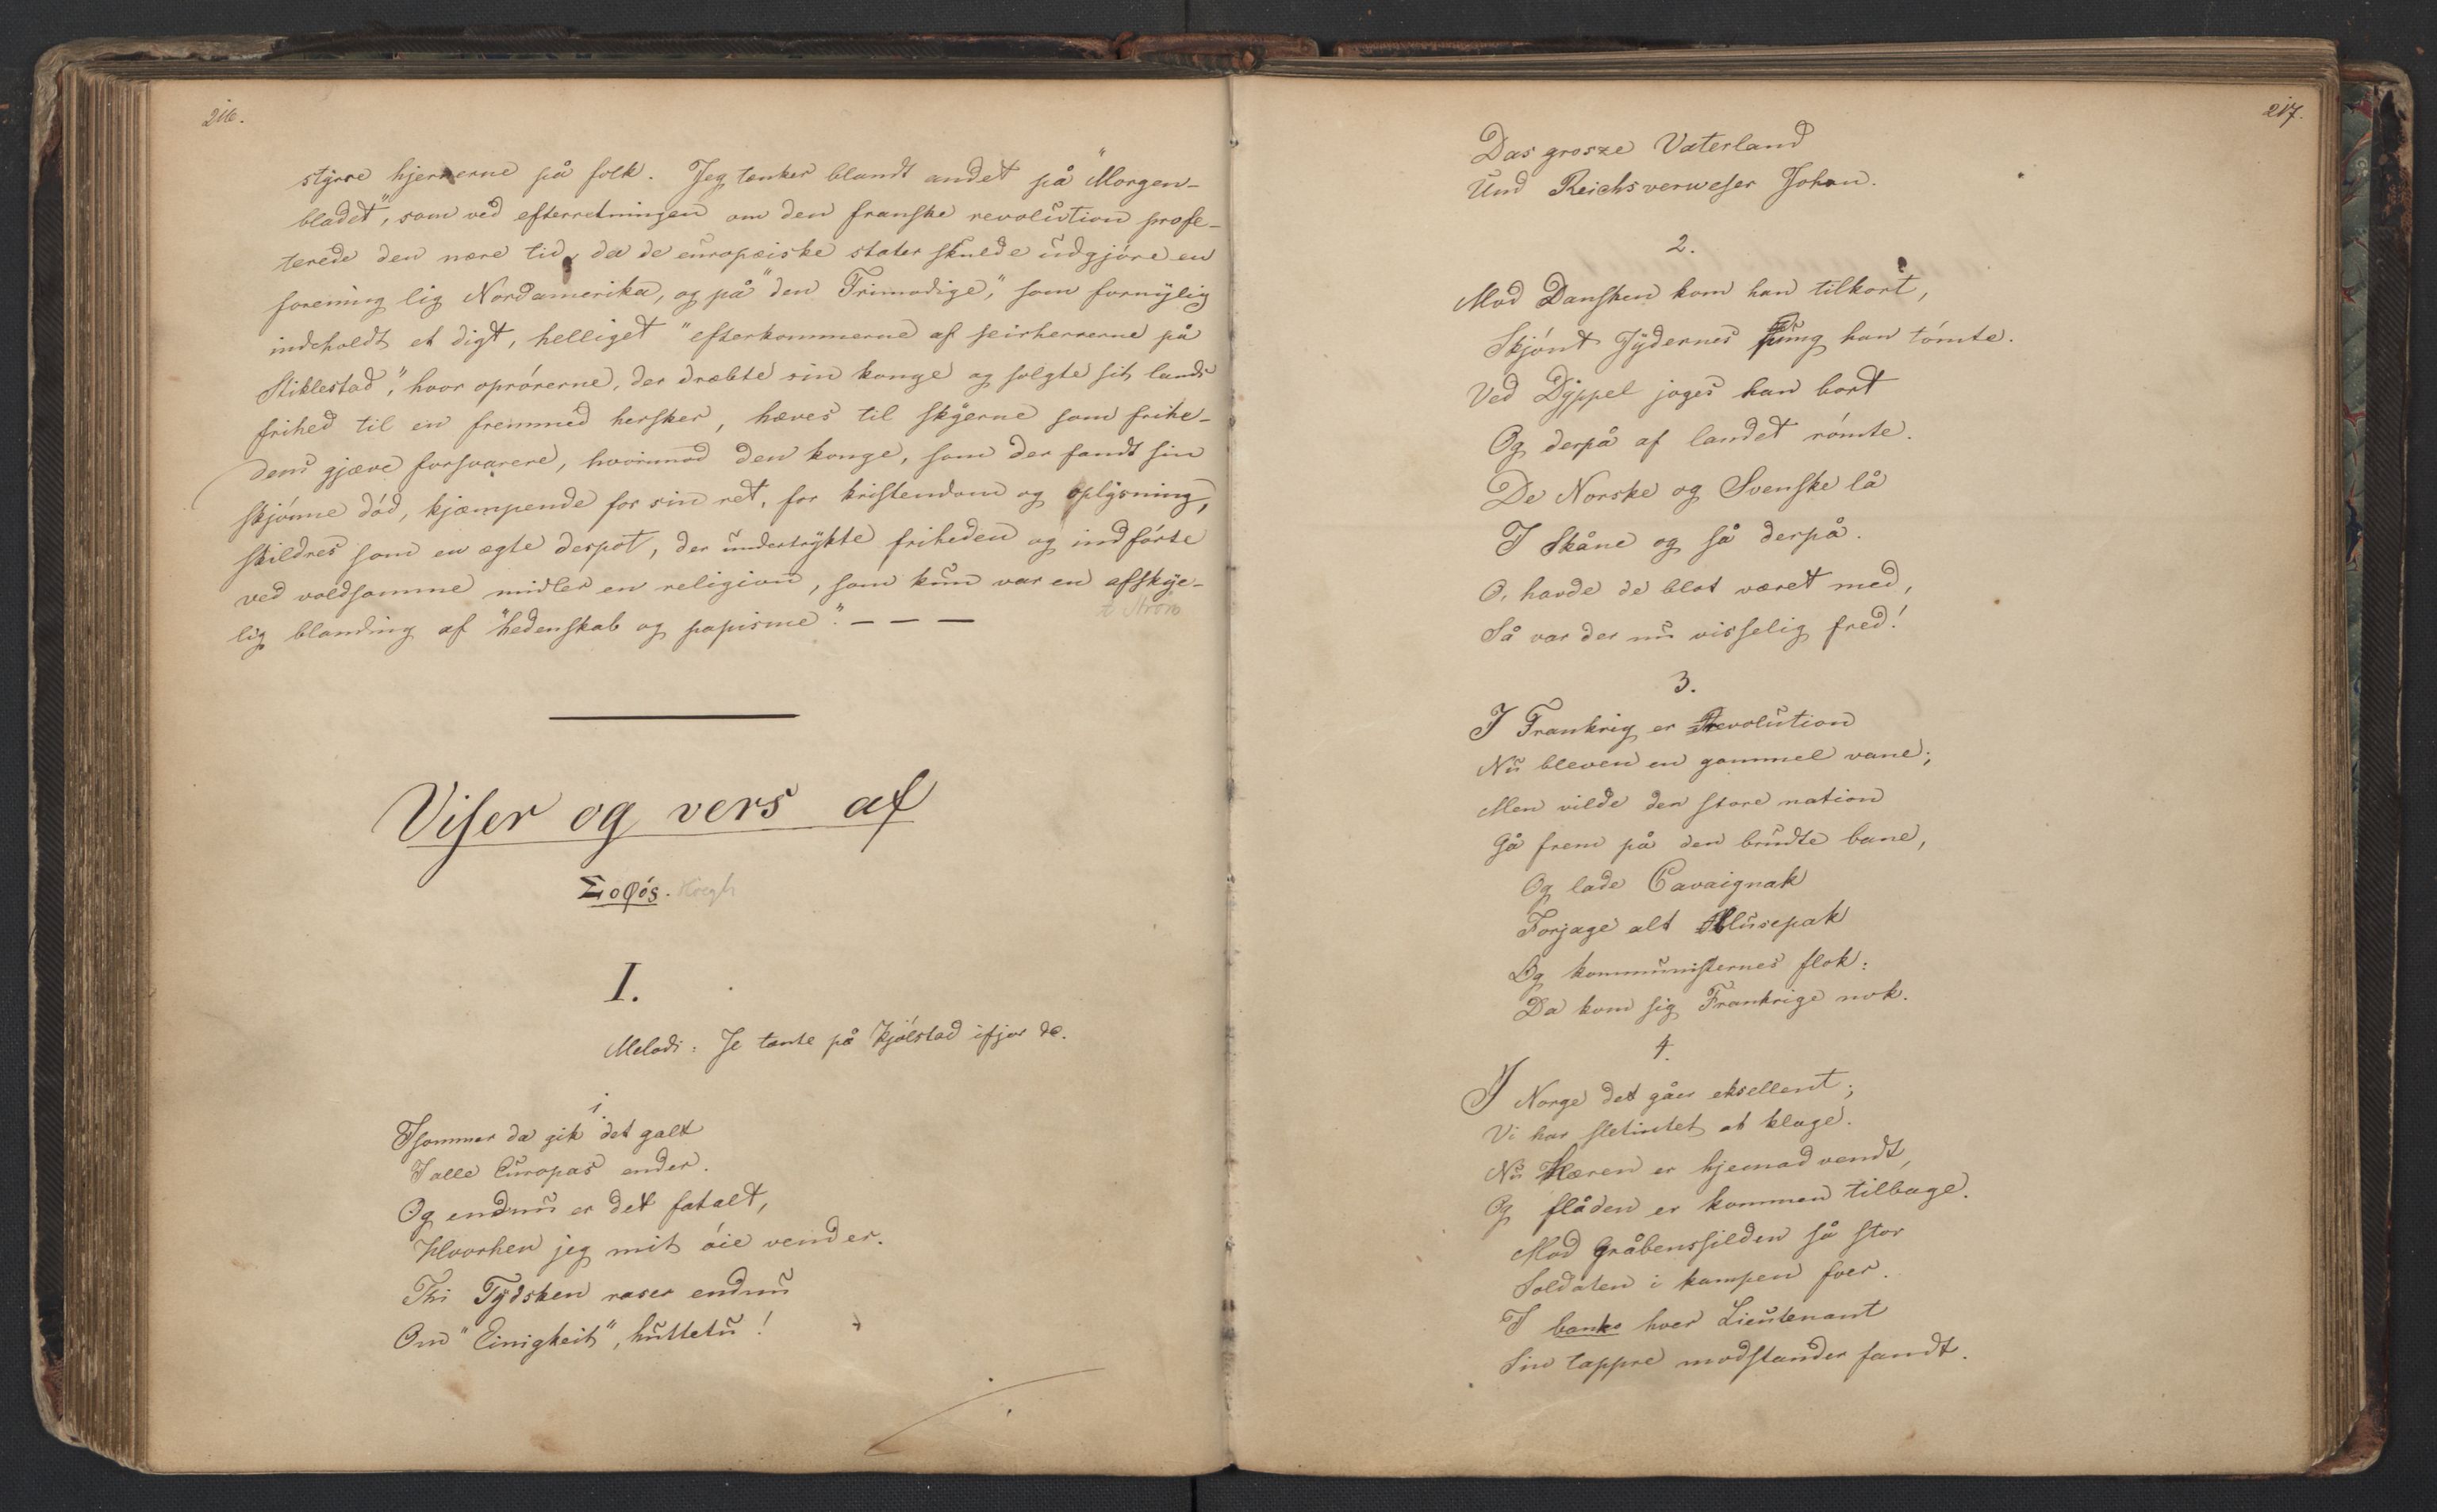 216.
styrre hjernerne på folk. Jeg tænker blandt andet på "Morgen-
bladet", som ved efterretningen om den franske revolution profe-
terede den nære tid, da de europæiske stater skulde udgjøre en
forening lig Nordamerika, og på "den Frimodige," som fornylig
indeholdt et digt, helliget "efterkommerne af seirherrerne på
Stiklestad," hvor oprørerne, der dræbte sin konge og solgte sit lands
frihed til en fremmed hersker, hæves til skyerne som frihe-
dens gjæve forsvarere, hvorimod den konge, som der fandt sin
skjønne død, kjæmpende for sin ret, for kristendom og oplysning,
skildres som en ægte despot, der undertrykte friheden og indførte
ved voldsomme midler en religion, som kun var en afskye-
lig blanding af "hedenskab og papisme". – – –
Viser og vers af
Σοφός. Hoegh
I.
Melodi: Je tænte på Kjølstad ifjor &c.
1.
Isommer da gik det galt
I alle Europas ender.
Og endnu er det fatalt,
Hvorhen jeg mit øie vender.
Thi Tydsken raser endnu
Om "Einigkeit", huttetu!
217.
Das grosze Vaterland
Und Reichsverweser Johan.
2.
Mod Dansken kom han tilkort,
Skjønt Jydernes pung han tømte.
Ved Dyppel joges han bort
Og derpå af landet rømte.
De Norske og Svenske lå
I Skåne og så derpå.
O, havde de blot været med,
Så var der nu visselig fred!
3.
I Frankrig er Revolution
Nu bleven en gammel vane;
Men vilde den store nation
Gå frem på den brudte bane,
Og lade Cavaignak
Forjage alt Blusepak
Og kommunisternes flok:
Da kom sig Frankrige nok.
4.
I Norge det gåer eksellent;
Vi har sletintet at klage.
Nu Hæren er hjemad vendt,
Og flåden er kommen tilbage.
Mod Gråbenssilden så stor
Soldaten i kampen foer.
I banko hver Lieutenant
Sin tappre modstander fandt.